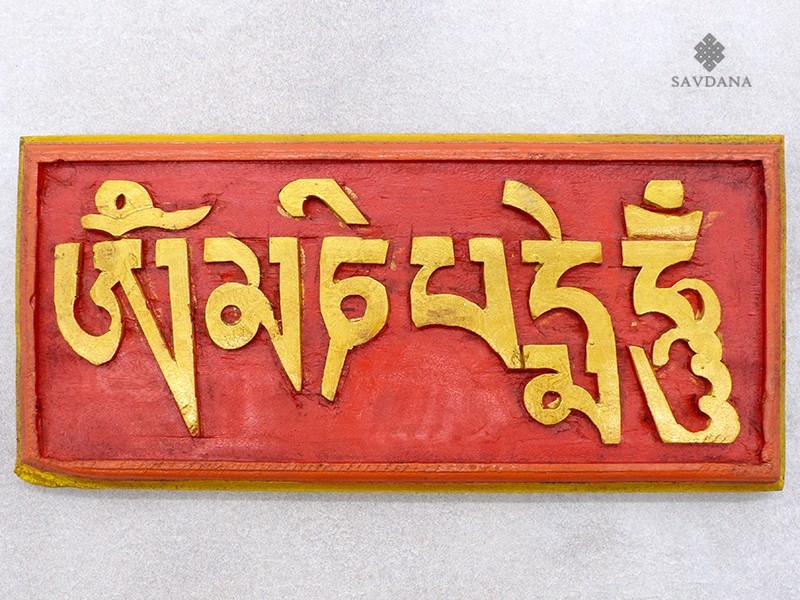 SAVDANA
ཨོཾམཎིཔདྨེཧཱུྃ